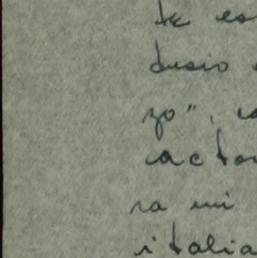 te es
desio
zo",
actor
ra mi
italia